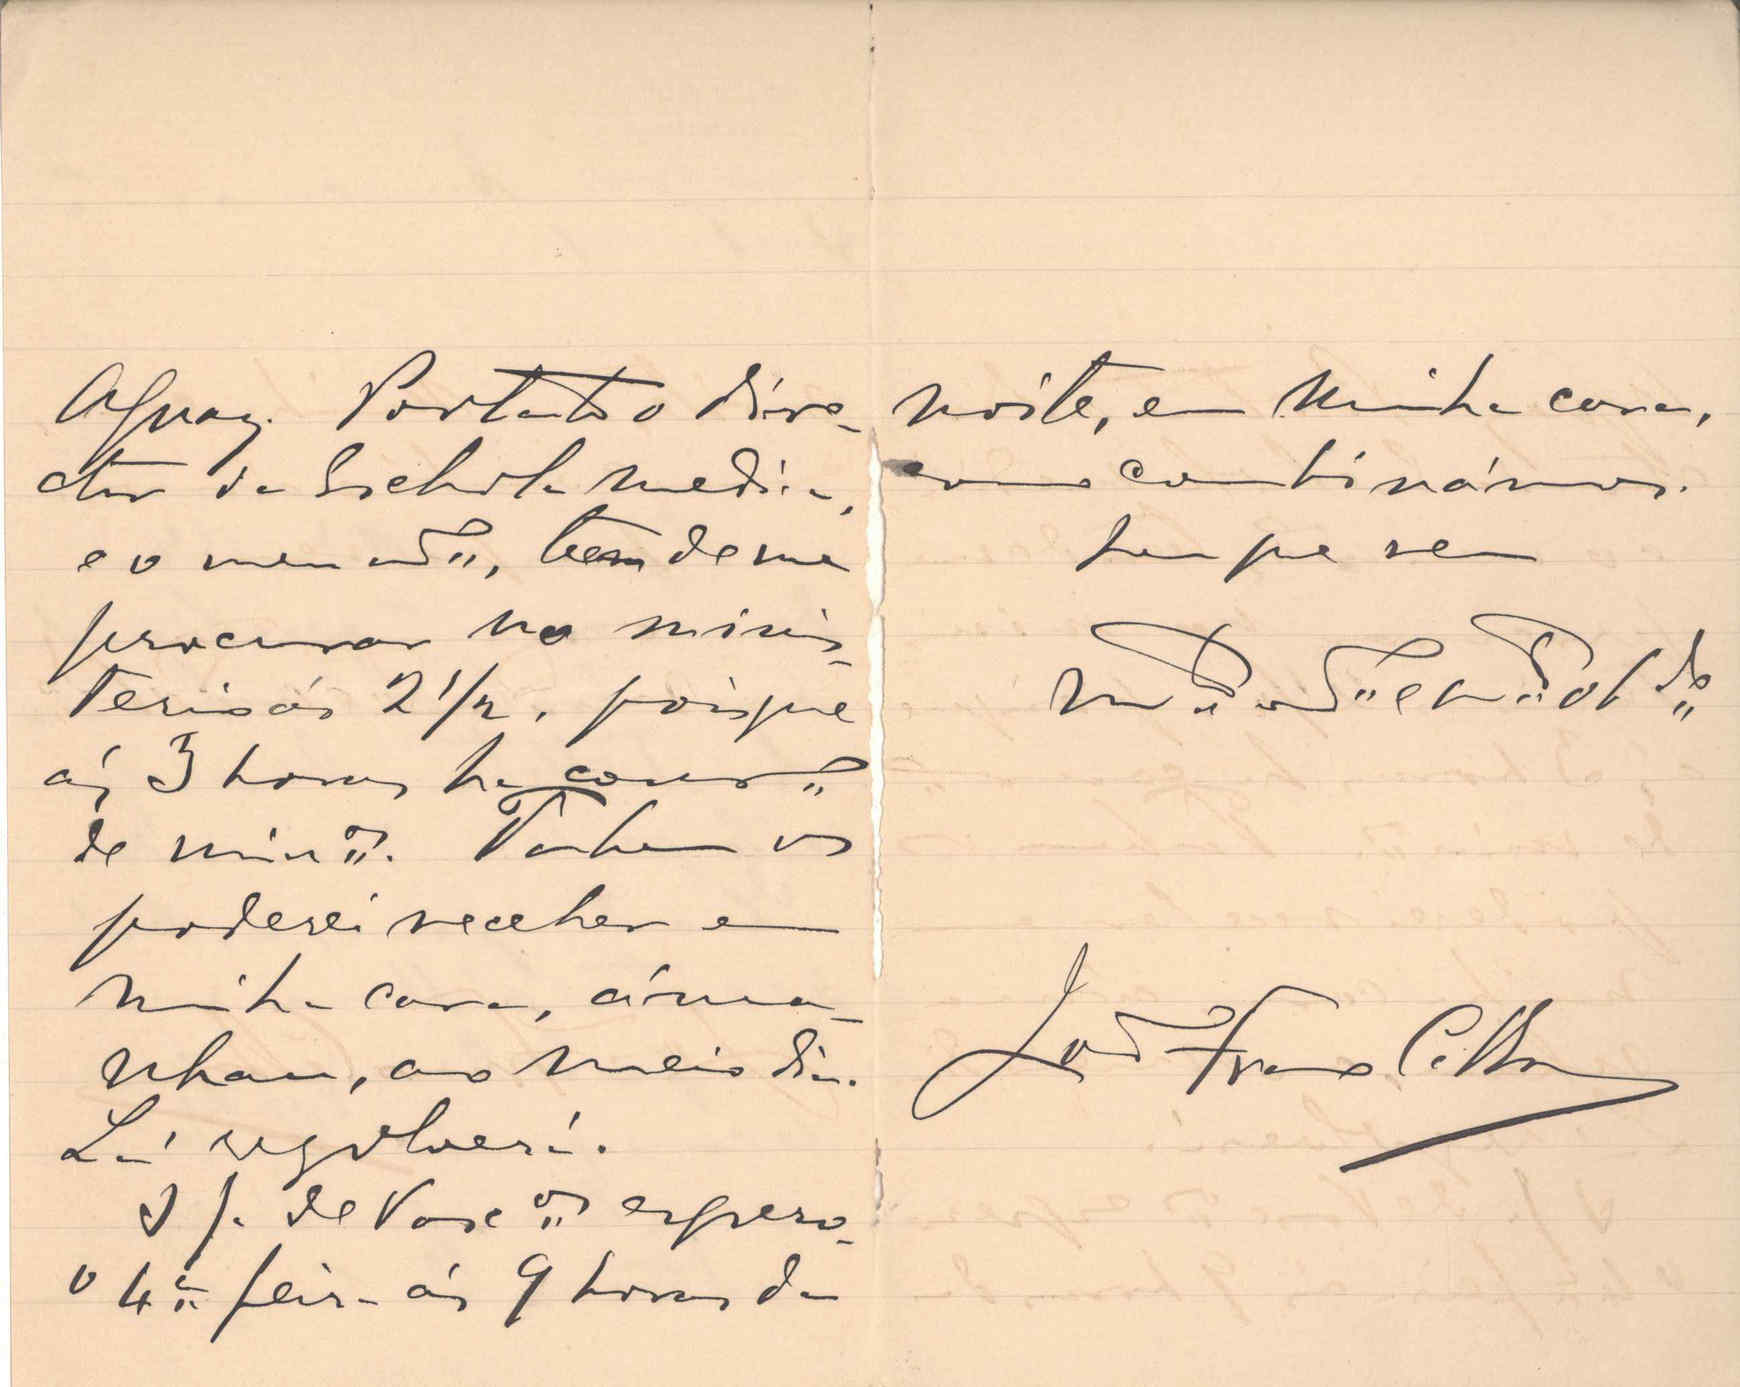 Aguaz. Portanto o dire-
ctor da Eschola medica,
e o meu am.º, teem de me
procurar no minis-
terio ás 2 1/2, poisque
ás 3 horas ha cons.º
de min.os. Tambem os
poderei receber em
minha casa, áma-
nhan, ao meio dia.
Lá resolverá.
O f. de Vasc.os espero-
o 4.ª feira ás 9 horas da
noite, em minha casa,
como combinámos.
Sempre seu
m.to am.º e m.to ob.do
João Franco Castello